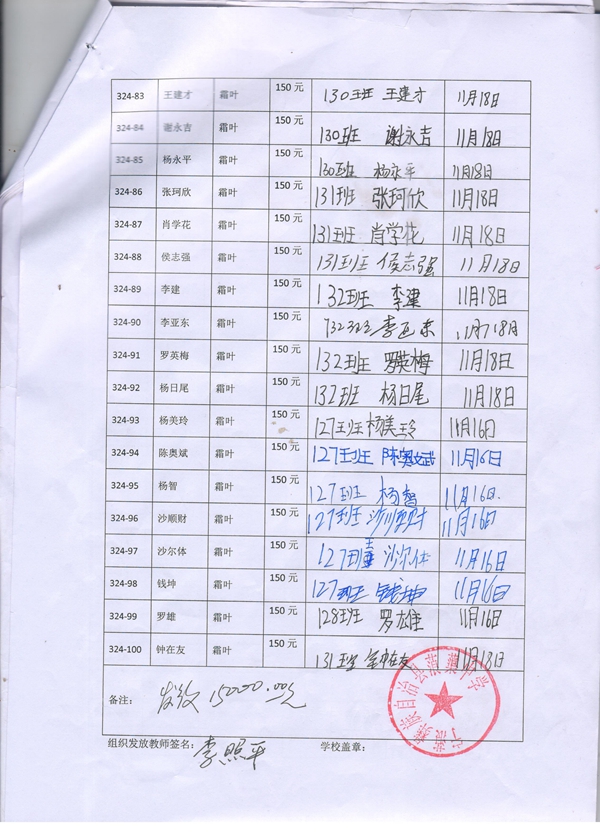 324-83 王建才 霜叶 150 元 130班 王建才 11月18日
324-84 谢永吉 霜叶 150 元 130班 谢永吉 11月18日
324-85 杨永平 霜叶 150 元 130班 杨永平 11月18日
324-86 张珂欣 霜叶 150 元 131班 张珂欣 11月18日
324-87 肖学花 霜叶 150 元 131班 肖学花 11月18日
324-88 侯志强 霜叶 150 元 131班 侯志强 11月18日
324-89 李建 霜叶 150 元 132班 李建 11月18日
324-90 李亚东 霜叶 150 元 李亚东 11月18月
324-91 罗英梅 霜叶 150 元 132班 罗英梅 11月18日
324-92 杨日尾 霜叶 150 元 132班 杨日尾 11月18日
324-93 杨美玲 霜叶 150 元 127班 杨美玲 11月16日
324-94 陈奥斌 霜叶 150 元 127班 陈奥斌 11月16日
324-95 杨智 霜叶 150 元 127班 杨智 11月16日.
324-96 沙顺财 霜叶 150 元 127班 沙顺财 11月16日
324-97 沙尔体 霜叶 150 元 127班 沙尔体 11月16日
324-98 钱坤 霜叶 150 元 127班 钱坤 11月16日
324-99 罗雄 霜叶 150 元 128班 罗雄 11月16日
324-100 钟在友 霜叶 150 元 131班 钟在友 11月18日
备注： 发放 15000.00元
组织发放教师签名： 李照平 学校盖章：
族自治县 中学